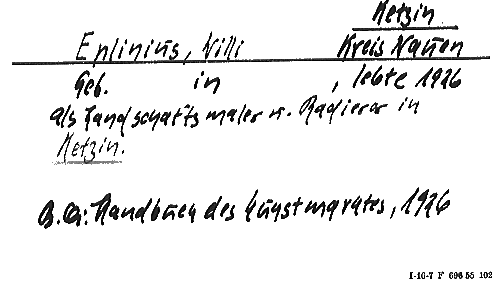 Ketzin
Eplinius, Willi Kreis Nauen
Geb. in , lebte 1926
als Landschaftsmaler u. Radierer in
Ketzin.
B.A.: Handbuch des Kunstmarktes, 1926
I-16-7 F 696 55 102